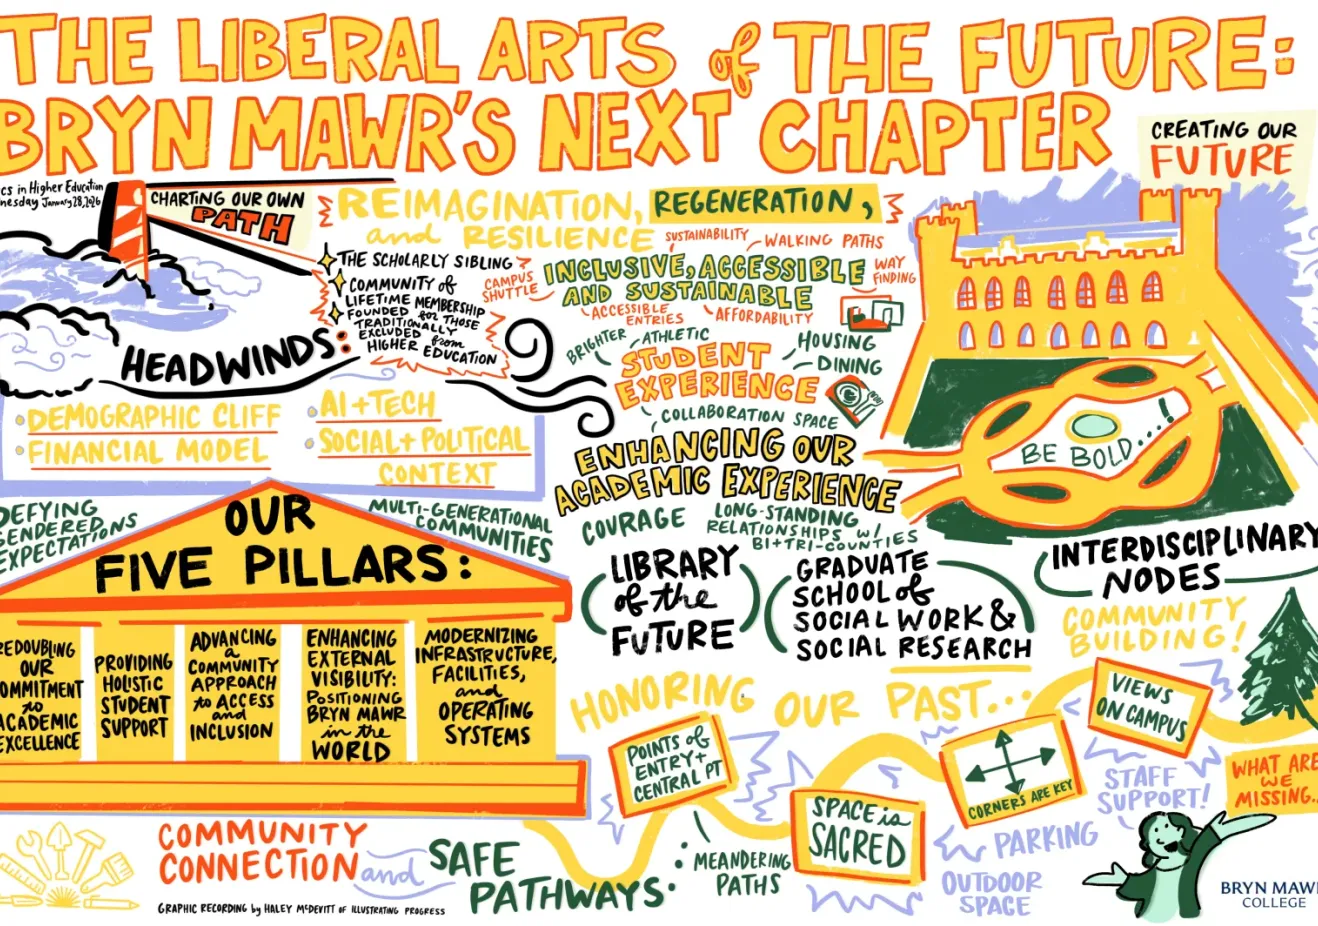 THE LIBERAL ARTS of THE FUTURE:
BRYN MAWR'S NEXT CHAPTER
in Higher Education
January 28, 2026
CHARTING OUR OWN
PATH
REIMAGINATION, REGENERATION,
and RESILIENCE
THE SCHOLARLY SIBLING
COMMUNITY of
LIFETIME MEMBERSHIP
FOUNDED for THOSE
TRADITIONALLY
EXCLUDED from
HIGHER EDUCATION
HEADWINDS:
• DEMOGRAPHIC CLIFF
• FINANCIAL MODEL
• AI + TECH
• SOCIAL + POLITICAL
CONTEXT
SUSTAINABILITY
WALKING PATHS
CAMPUS
SHUTTLE
INCLUSIVE, ACCESSIBLE
AND SUSTAINABLE
WAY
FINDING
ACCESSIBLE
ENTRIES
AFFORDABILITY
BRIGHTER
ATHLETIC
HOUSING
DINING
STUDENT
EXPERIENCE
COLLABORATION SPACE
ENHANCING OUR
ACADEMIC EXPERIENCE
COURAGE
LONG-STANDING
RELATIONSHIPS w/
BI+TRI-COUNTIES
CREATING OUR
FUTURE
BE BOLD....!
DEFYING
GENDERED
EXPECTATIONS
MULTI-GENERATIONAL
COMMUNITIES
OUR
FIVE PILLARS:
REDOUBLING
OUR
COMMITMENT
to
ACADEMIC
EXCELLENCE
PROVIDING
HOLISTIC
STUDENT
SUPPORT
ADVANCING
a
COMMUNITY
APPROACH
to ACCESS
and
INCLUSION
ENHANCING
EXTERNAL
VISIBILITY:
POSITIONING
BRYN MAWR
in the
WORLD
MODERNIZING
INFRASTRUCTURE,
FACILITIES,
and
OPERATING
SYSTEMS
LIBRARY
of the
FUTURE
GRADUATE
SCHOOL of
SOCIAL WORK &
SOCIAL RESEARCH
INTERDISCIPLINARY
NODES
COMMUNITY
BUILDING!
HONORING OUR PAST...
POINTS of
ENTRY +
CENTRAL PT
MEANDERING
PATHS
SPACE is
SACRED
CORNERS ARE KEY
VIEWS
ON CAMPUS
STAFF
SUPPORT!
PARKING
OUTDOOR
SPACE
WHAT ARE
WE
MISSING...
COMMUNITY
CONNECTION and SAFE
PATHWAYS
GRAPHIC RECORDING by HALEY McDEVITT OF ILLUSTRATING PROGRESS
BRYN MAWR
COLLEGE